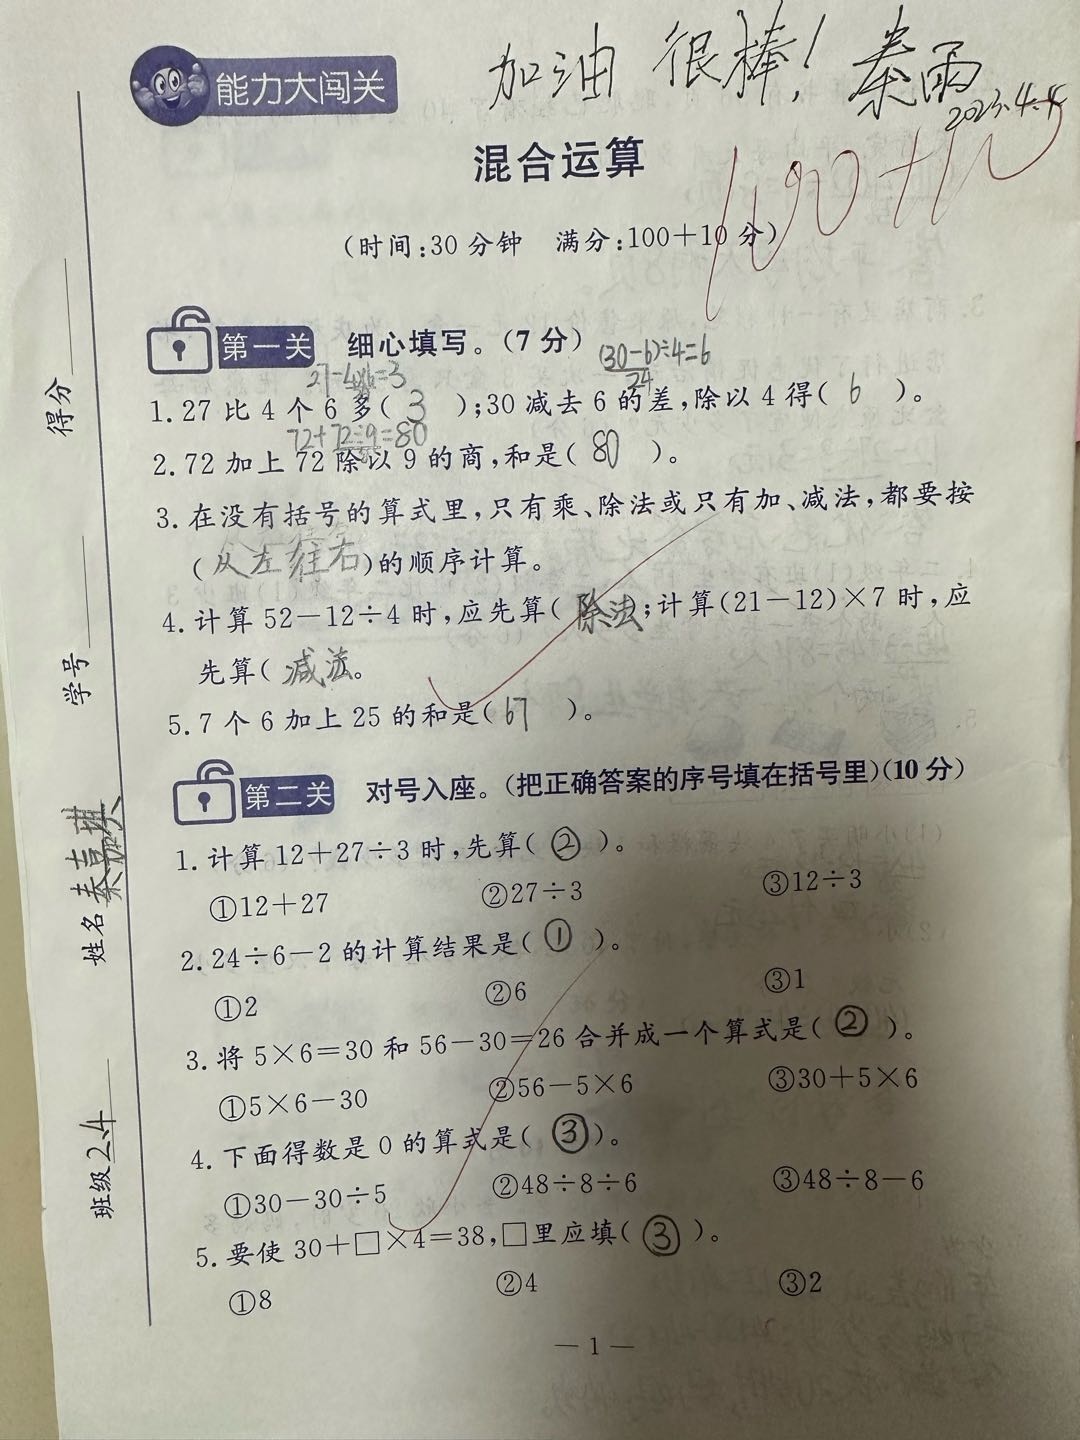 能力大闯关
加油 很棒! 秦雨
2023.4.4
混合运算
100+10
(时间:30分钟 满分:100+10分)
第一关 细心填写。(7分)
27-4×6=3
(30-6)÷4=6
24
1.27比4个6多( 3 );30减去6的差,除以4得( 6 )。
72+72÷9=80
2.72加上72除以9的商,和是( 80 )。
3.在没有括号的算式里,只有乘、除法或只有加、减法,都要按
(从左往右)的顺序计算。
4.计算52-12÷4时,应先算(除法);计算(21-12)×7时,应
先算(减法)。
5.7个6加上25的和是( 67 )。
第二关 对号入座。(把正确答案的序号填在括号里)(10分)
1.计算12+27÷3时,先算( ② )。
①12+27 ②27÷3 ③12÷3
2.24÷6-2的计算结果是( ① )。
①2 ②6 ③1
3.将5×6=30和56-30=26合并成一个算式是( ② )。
①5×6-30 ②56-5×6 ③30+5×6
4.下面得数是0的算式是( ③ )。
①30-30÷5 ②48÷8÷6 ③48÷8-6
5.要使30+□×4=38,□里应填( ③ )。
①8 ②4 ③2
— 1 —
得分
学号
姓名 秦嘉琪
班级 2.4